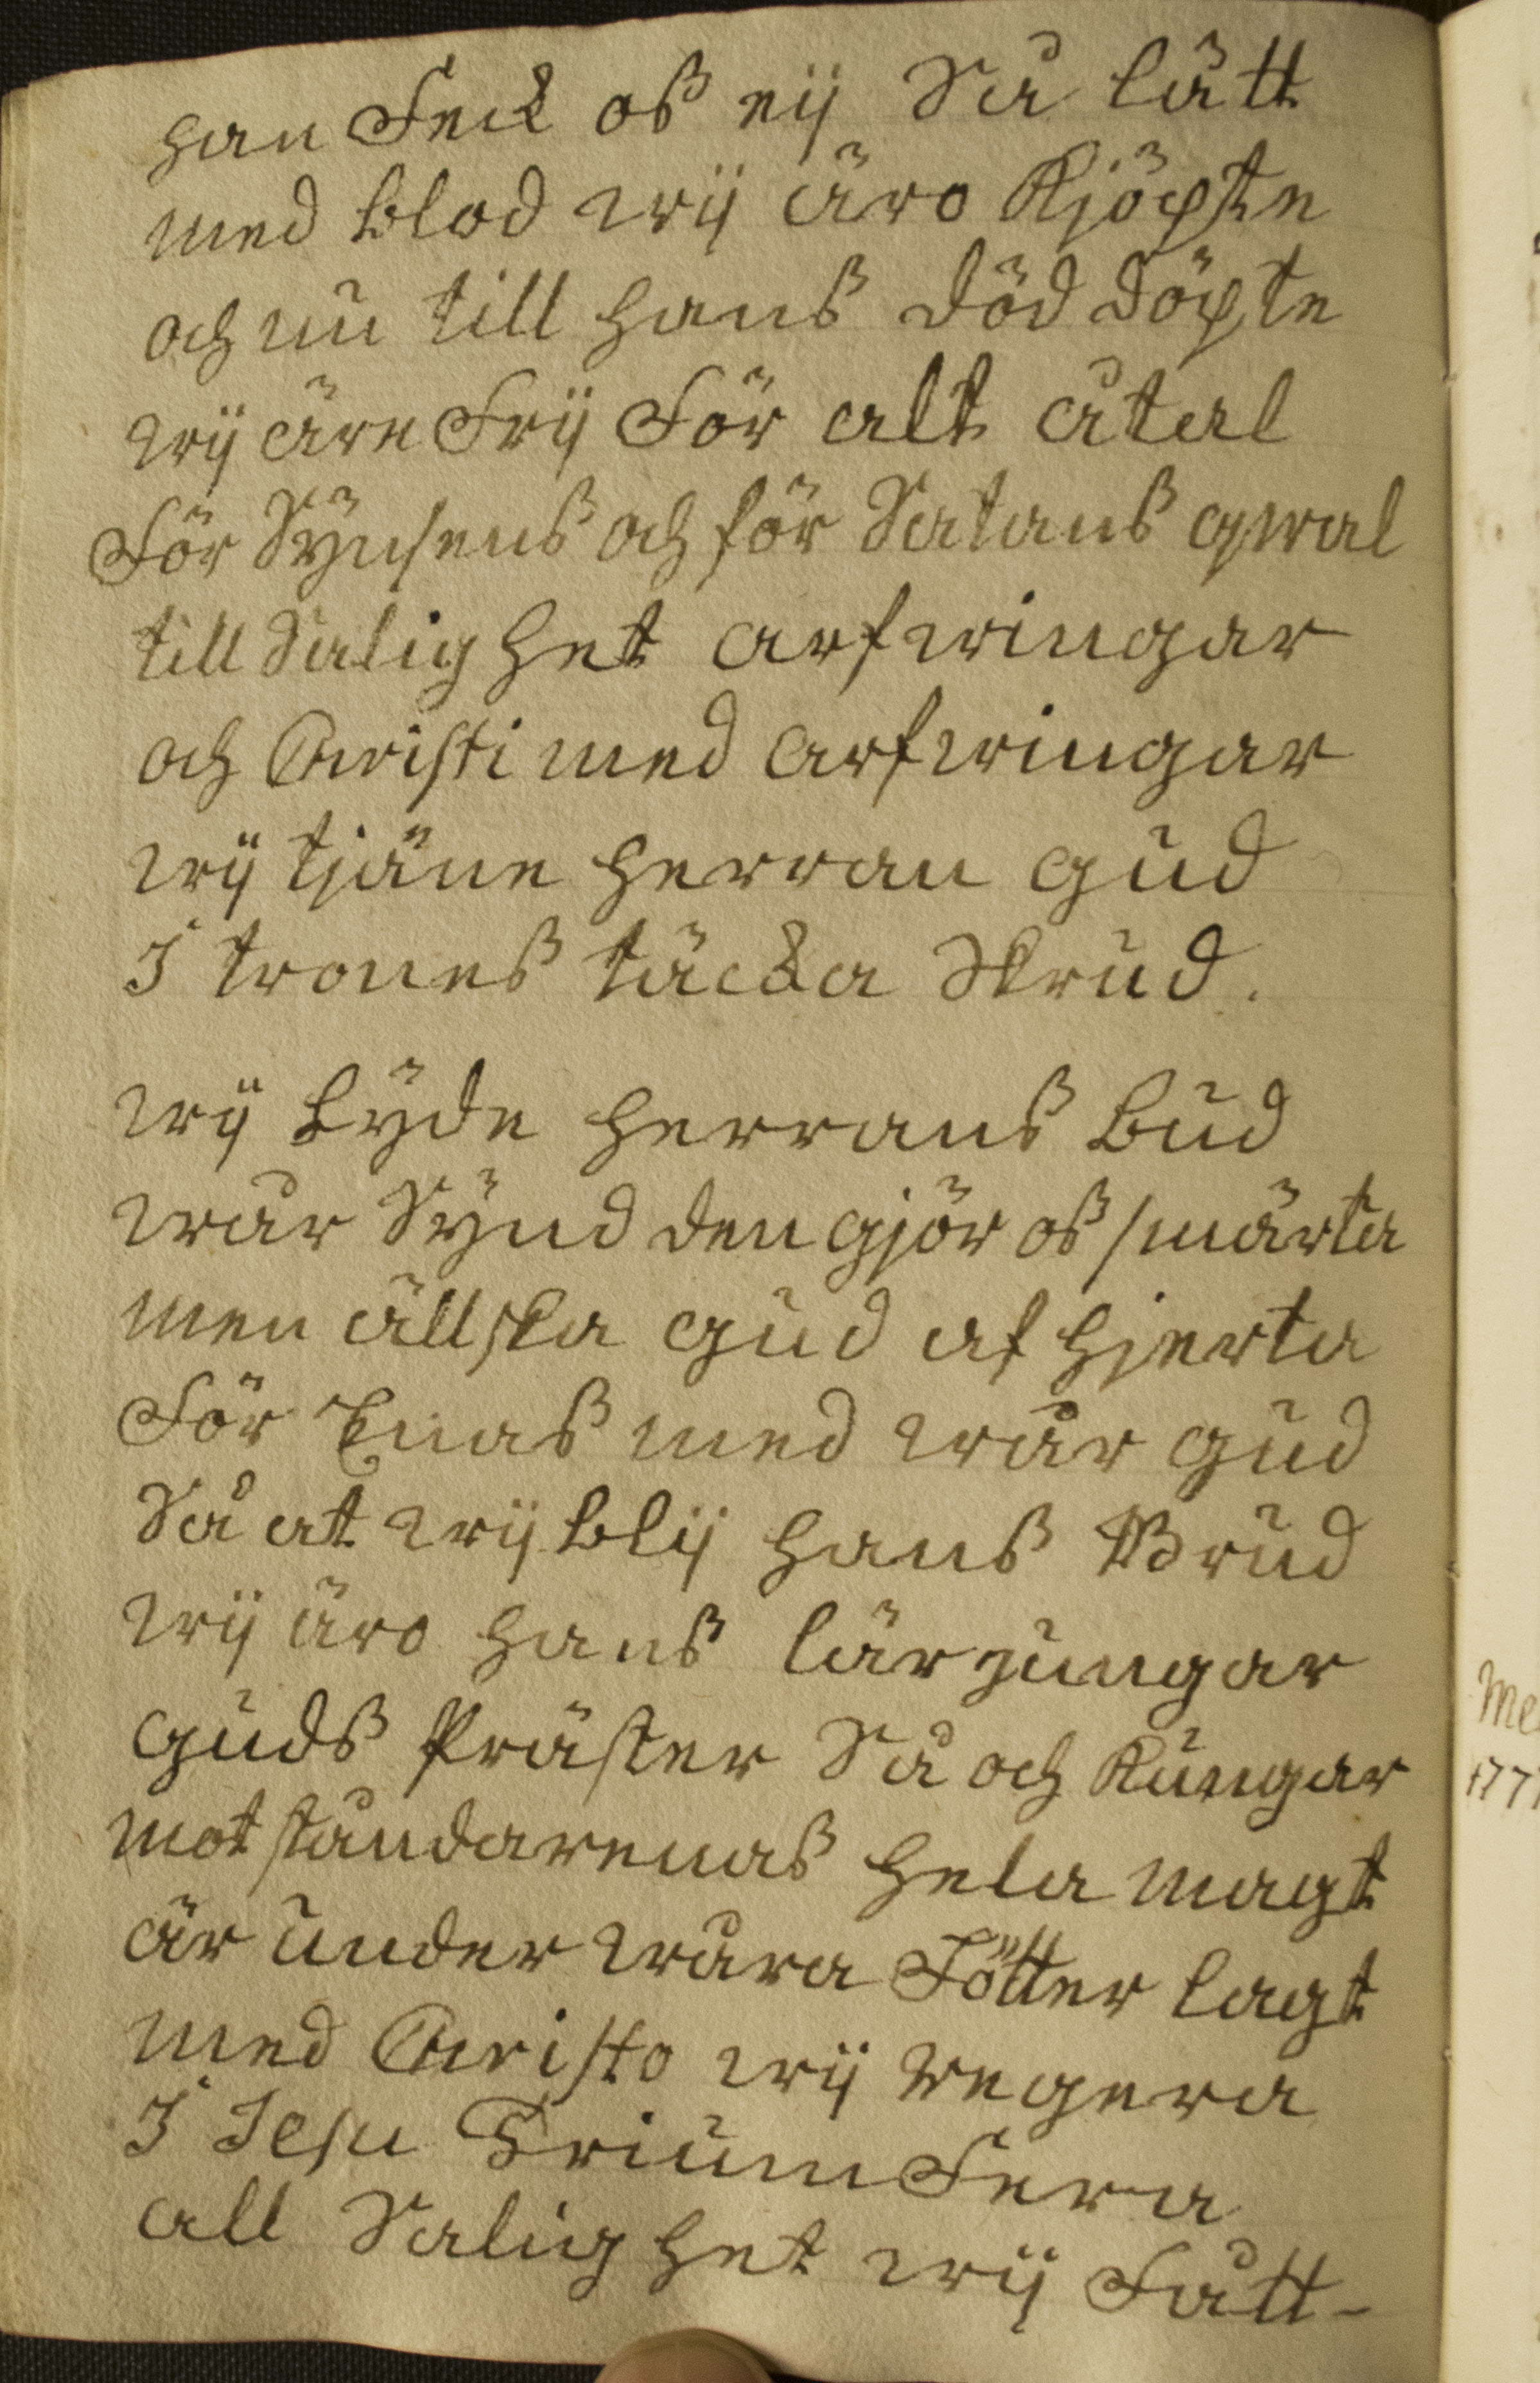 han Feck oß eij Så lätt
med blod wij äro Kjöpte
och nu till hans död döpte
wij äre Frij För alt åtal
För Sÿnsens och för Satans qwal
till Salighet arfwingar
och Christi med arfwingar
wij tjäne herran gud
I trones täcka Skrud.
wij Lÿde herrans bud
wår Sÿnd den gjör oß smärta
men ällska gud af hjerta
För Enas med wår gud
Så at wij blij hans Brud
wij äro hans lärjungar
guds Präster Så och Kungar
mot ståndarenas hela magt
är under wåra Fötter lagt
med Christo wij regera
I Jesu Trium Fera
all Salighet wij Fått-
Me
177